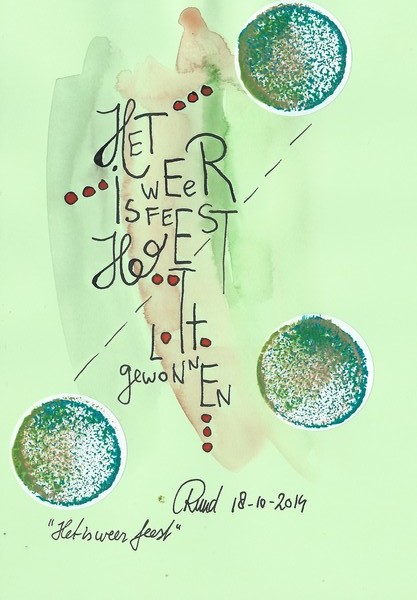 HET
WEeR
iS FEEST
gewoNNEN
Ruud 18-10-2014
"Het is weer feest"